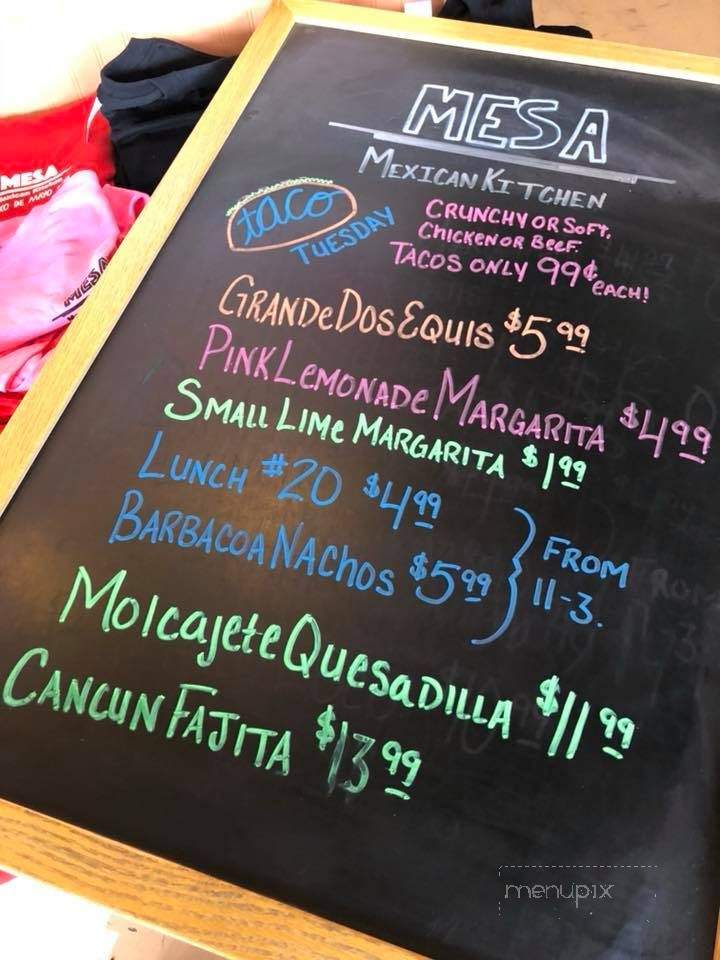 MESA
MEXICAN KITCHEN
taco
TUESDAY
CRUNCHY OR SOFT,
CHICKEN OR BEEF.
TACOS ONLY 99¢ EACH!
GRANDE DOS EQUIS $5 99
PINK LEMONADE MARGARITA $4 99
SMALL LIME MARGARITA $1 99
LUNCH #20 $4 99
BARBACOA NACHOS $5 99
FROM
11-3.
Molcajete QUESADILLA $11 99
CANCUN FAJITA $13 99
MESA
MESA
menupix